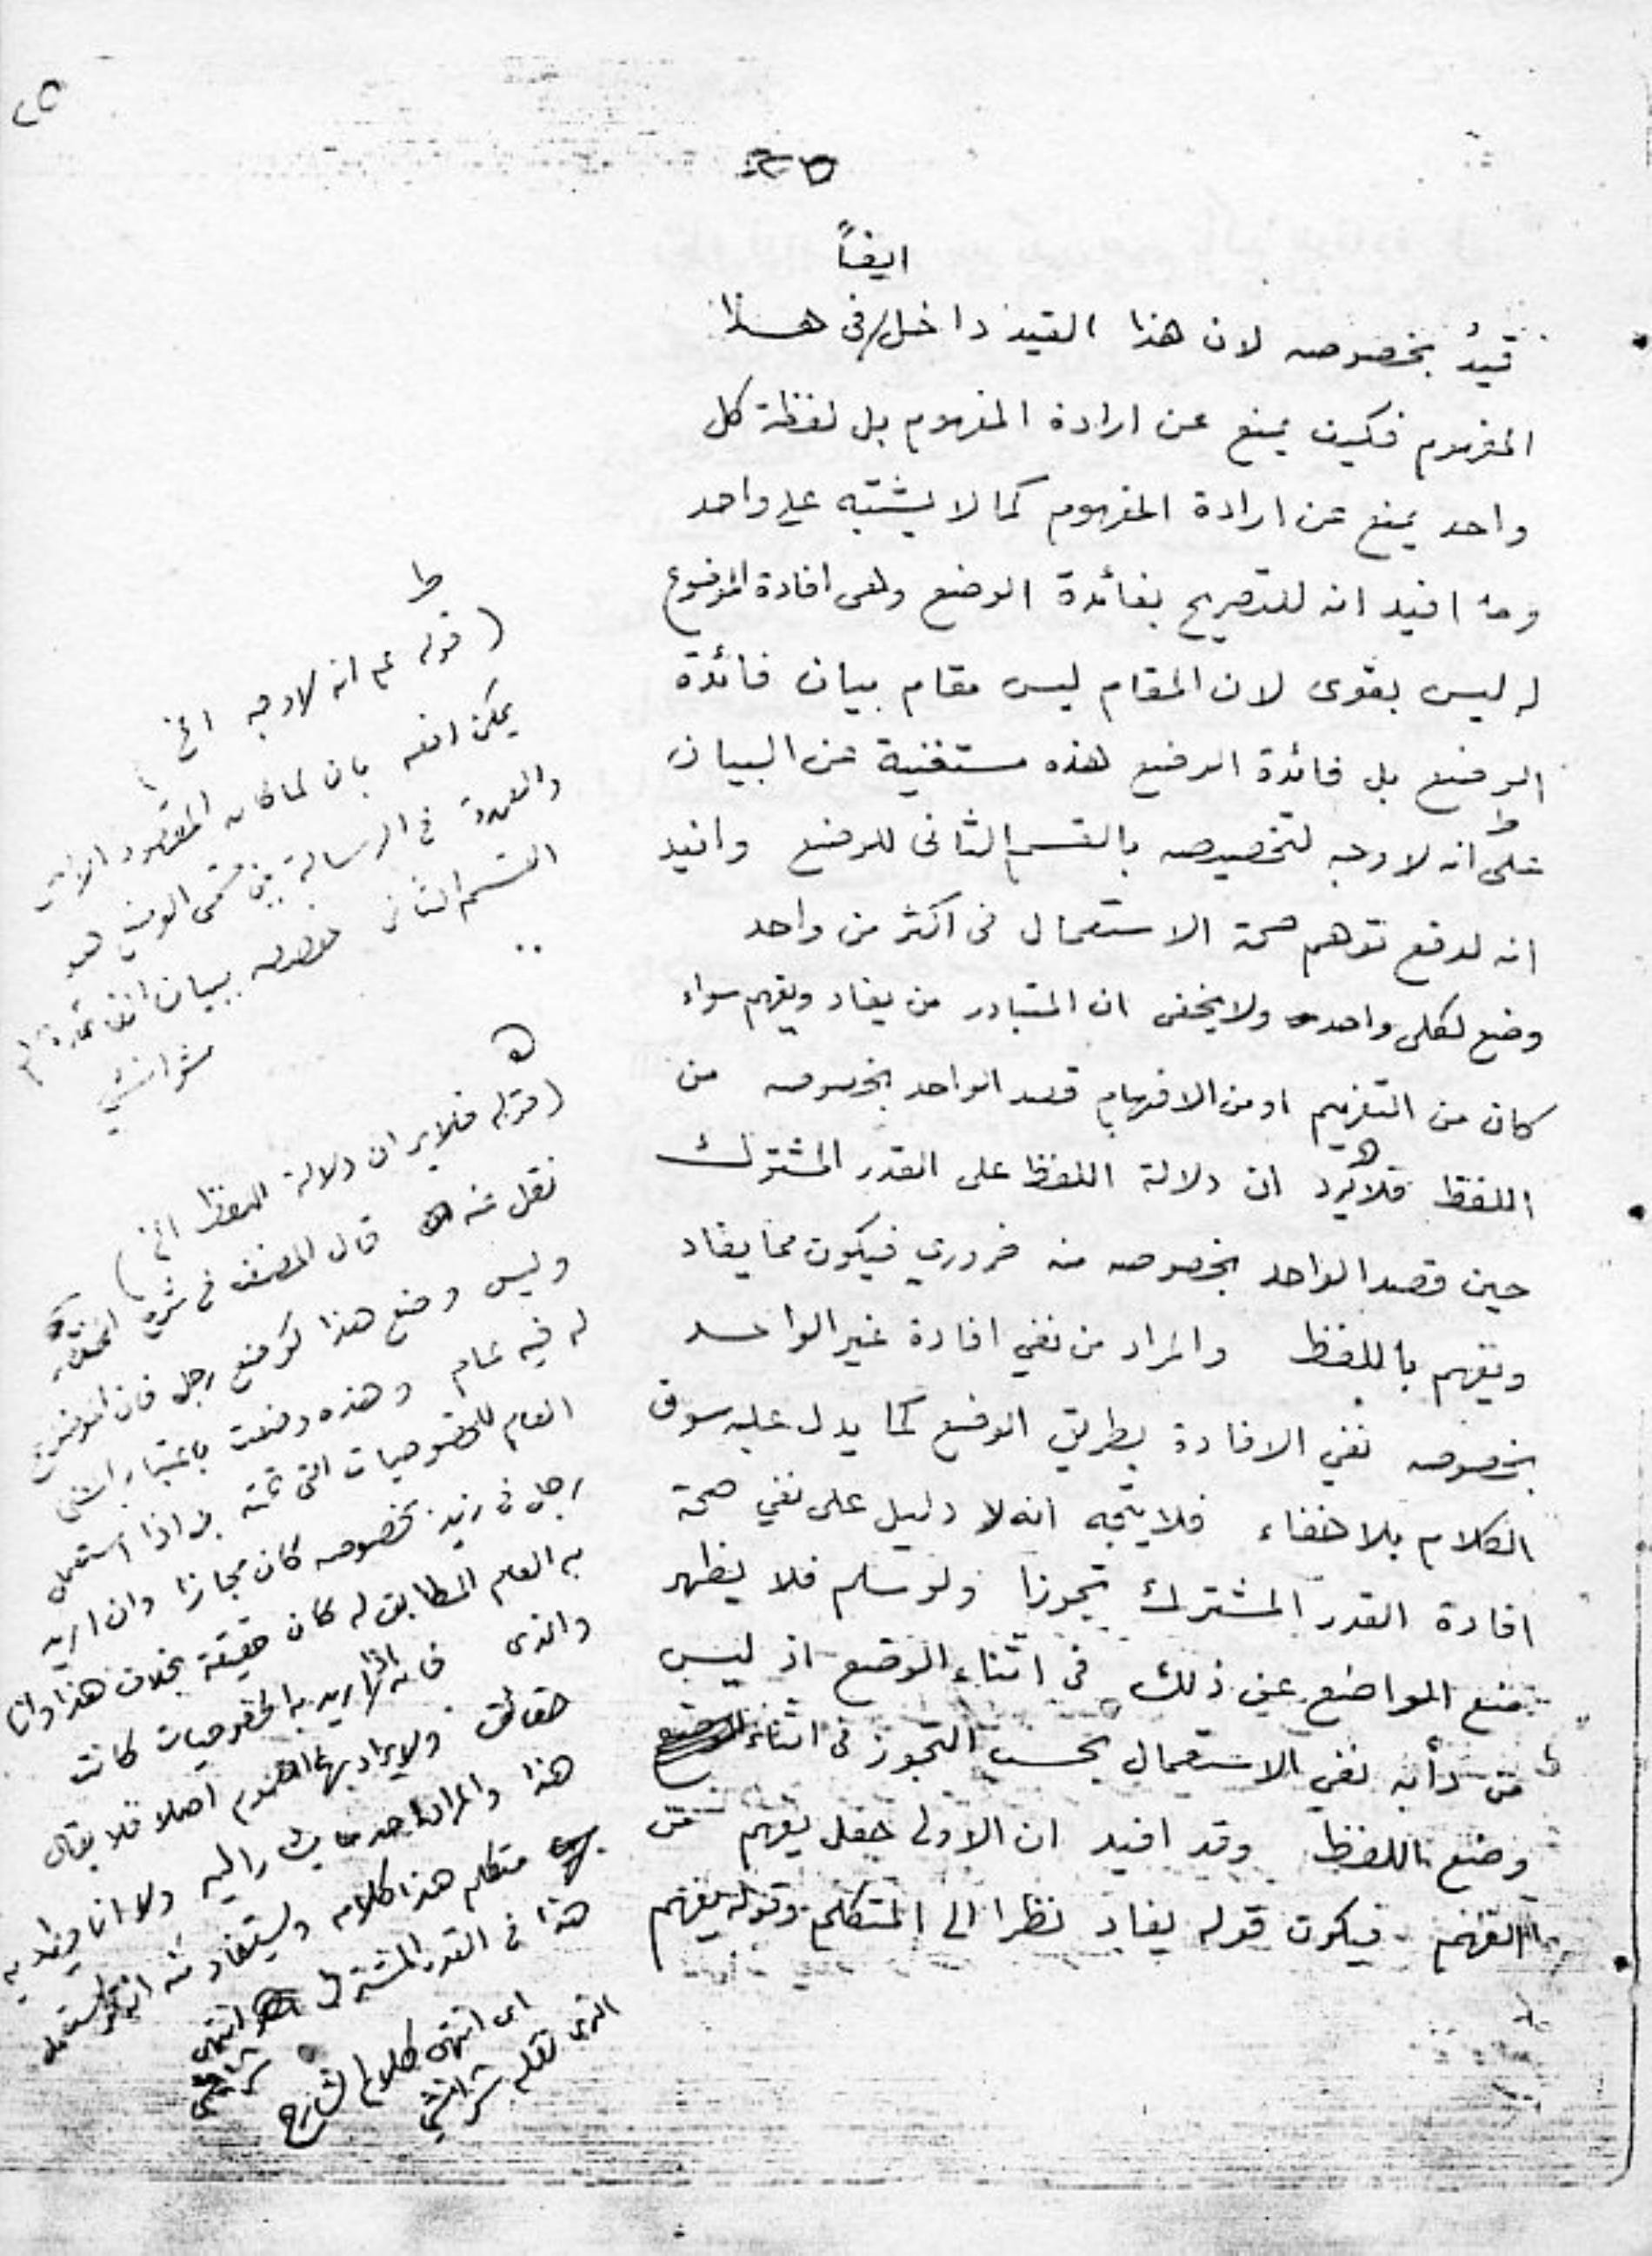 ٢٥
٢٥
ايضاً
قيد بخصوصه لان هذا القيد داخل في هذا
المفهوم فكيف يمنع عن ارادة المفهوم بل لفظة كل
واحد يمنع عن ارادة المفهوم كما لا يشتبه على واحد
وما افيد انه للتصريح بفائدة الوضع وهى افادة الموضوع
له ليس بقوى لان المقام ليس مقام بيان فائدة
الوضع بل فائدة الوضع هذه مستغنية عن البيان
على انه لا وجه لتخصيصه بالقسم الثانى للوضع وافيد
انه لدفع توهم صحة الاستعمال فى اكثر من واحد
وضع لكل واحد ولا يخفى ان المتبادر من يفاد ويفهم سواء
كان من التفهيم او من الافهام قصد الواحد بخصوصه من
اللفظ فلا يرد ان دلالة اللفظ على القدر المشترك
حين قصد الواحد بخصوصه منه ضروري فيكون مما يفاد
ويفهم باللفظ والمراد من نفي افادة غير الواحد
بخصوصه نفي الافادة بطريق الوضع كما يدل عليه سوق
الكلام بلا خفاء فلا يتجه انه لا دليل على نفي صحة
افادة القدر المشترك تجوزا ولو سلم فلا يظهر
منع المواضع عن ذلك فى اثناء الوضع اذ ليس
من دأبه نفي الاستعمال بحسب التجوز فى اثناء
وضع اللفظ وقد افيد ان الاولى جعل يفهم من
التفهم فيكون قوله يفاد نظرا الى المتكلم وقوله يفهم
ط
(قوله على انه لا وجه الخ)
يمكن دفعه بان لما كان المقصود
والعمدة فى الرسالة من قسمى الوضع هو
القسم الثانى خصصه ببيان
شرانشي
ه
(قوله فلا يرد ان دلالة اللفظ الخ)
نقل عنه قال المصنف فى شرح المختصر
وليس وضع هذا كوضع رجل فان الموضوع
له فيه عام وهذه وضعت باعتبار المعنى
العام للخصوصيات التى تحته فاذا استعمل
رجل فى زيد بخصوصه كان مجازا وان اريد
به العام المطابق له كان حقيقة بخلاف هذا وانا
والذى فانه اذا اريد به الخصوصيات كانت
حقائق ولا يراد بها العموم اصلا فلا يقال
هذا والمراد احد مما يشار اليه ولا انا ويراد به
متكلم هذا كلامه ويستفاد منه
هذا فى القدر المشترك انتهى
شرانشي
اى انتهى كلام الشارح
الذى نقله شرانشي